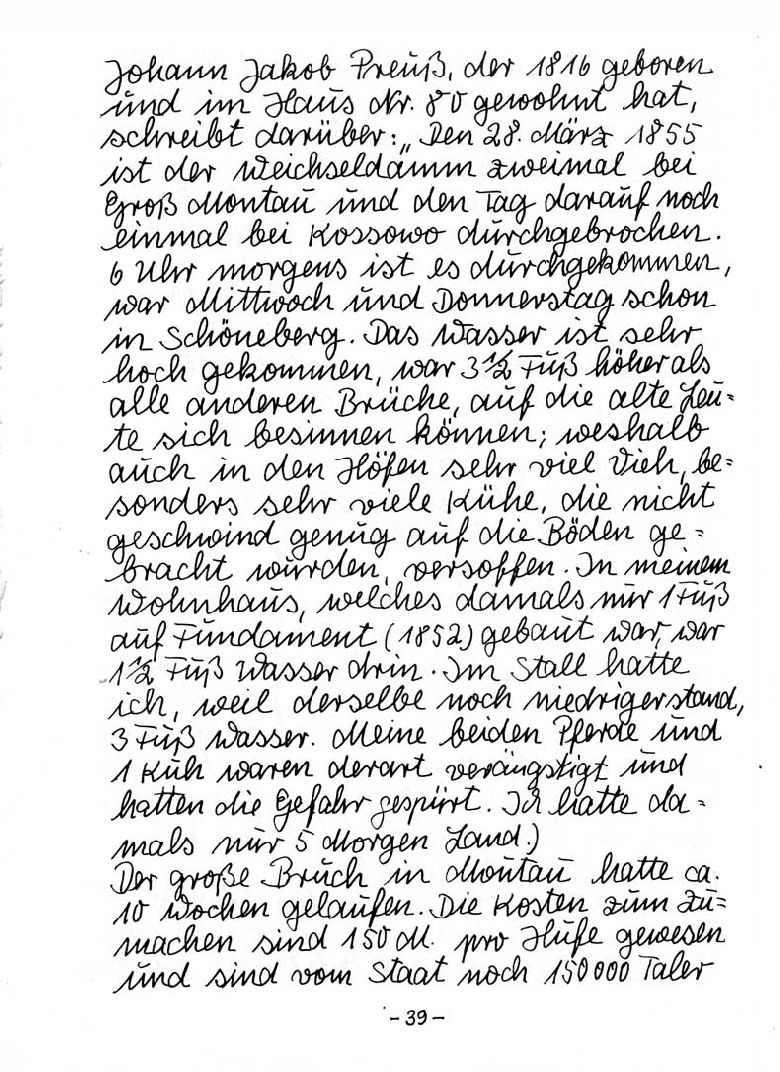 Johann Jakob Preuß, der 1816 geboren
und im Haus Nr. 80 gewohnt hat,
schreibt darüber: „Den 28. März 1855
ist der Weichseldamm zweimal bei
Groß Montau und den Tag darauf noch
einmal bei Kossowo durchgebrochen.
6 Uhr morgens ist es durchgekommen,
war Mittwoch und Donnerstag schon
in Schöneberg. Das Wasser ist sehr
hoch gekommen, war 3 1/2 Fuß höher als
alle anderen Brüche, auf die alte Leu=
te sich besinnen können; weshalb
auch in den Höfen sehr viel Vieh, be=
sonders sehr viele Kühe, die nicht
geschwind genug auf die Böden ge=
bracht wurden, versoffen. In meinem
Wohnhaus, welches damals nur 1 Fuß
auf Fundament (1852) gebaut war, war
1 1/2 Fuß Wasser drin. Im Stall hatte
ich, weil derselbe noch niedriger stand,
3 Fuß Wasser. Meine beiden Pferde und
1 Kuh waren derart verängstigt und
hatten die Gefahr gespürt. Ich hatte da=
mals nur 5 Morgen Land.)
Der große Bruch in Montau hatte ca.
10 Wochen gelaufen. Die Kosten zum Zu=
machen sind 150 M. pro Hufe gewesen
und sind vom Staat noch 150000 Taler
- 39 -